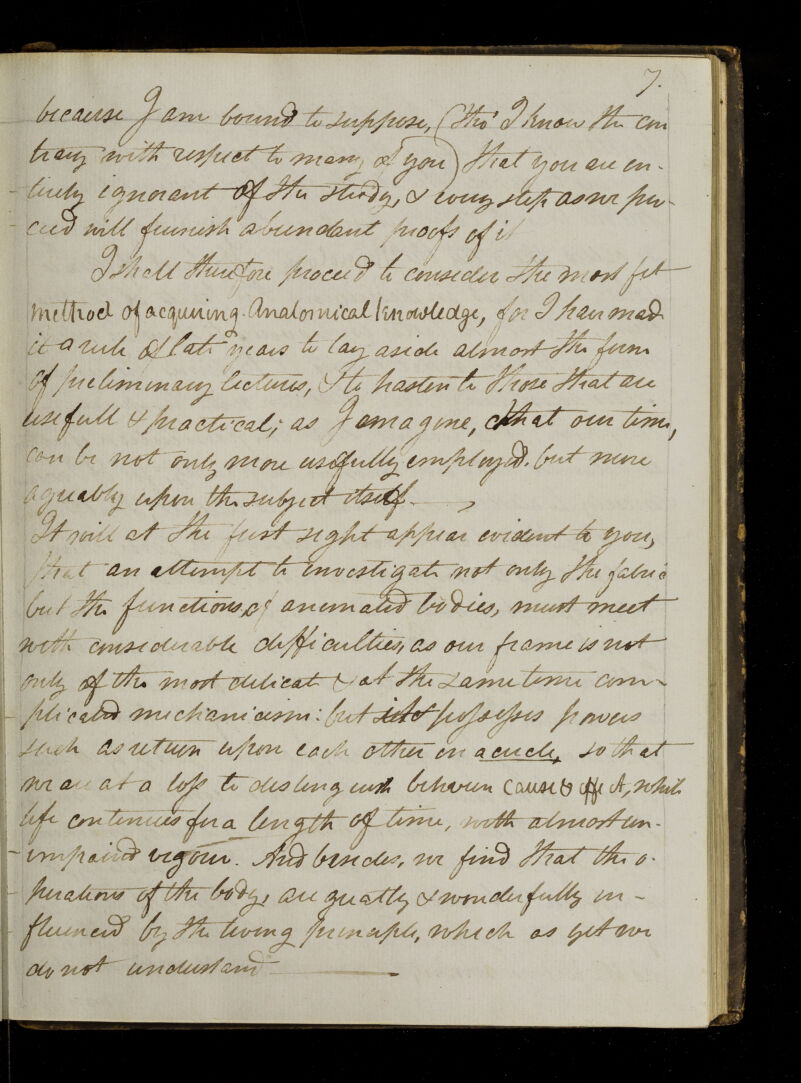 7.
because I am bound to suppose, (tho' I know the con
trary with respect to many of you) that you are en-
tirely ignorant of the study, & every step as we pro-
ceed will furnish abundant proofs of it
I shall therefore proceed to consider the most fit
method of acquiring Anatomical knowledge, for I have mad
it a rule of late years to lay aside almost the form
of preliminary lectures, & to hasten to those that are
usefull & practical; as I emagine, that our time,
can be not only more usefully employed. but more
agreably upon the subject itself.
It will at the first sight appear evident to you,
that an attempt to envestigate not only the fabric
but the functions, of anemated bodies, must meet
with considerable difficulties, as our frame is not
only of the most delicate & at the same time com-
plicated mechanicism: but possesses powers
such as return upon each other in a circle, so that
we are at a loss to destenguish between cause & effect, while
life contenues for a length of time, with almost un-
-impaired vigour. And besides, we find that the o-
perations of the body, are greatly & wonderfully in-
fluenced by the liveng principle, which as yet we
do not understand